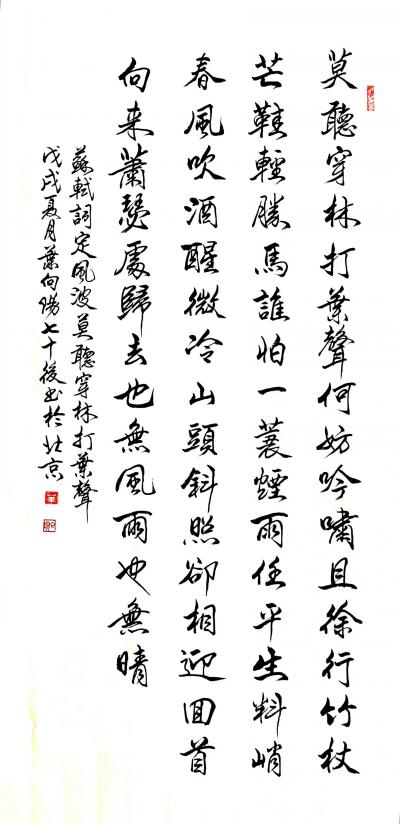 莫聽穿林打葉聲何妨吟嘯且徐行竹杖
芒鞋輕勝馬誰怕一蓑煙雨任平生料峭
春風吹酒醒微冷山頭斜照卻相迎回首
向来蕭瑟處歸去也無風雨也無晴
蘇軾詞定風波莫聽穿林打葉聲
戊戌夏月葉向陽七十後书於北京